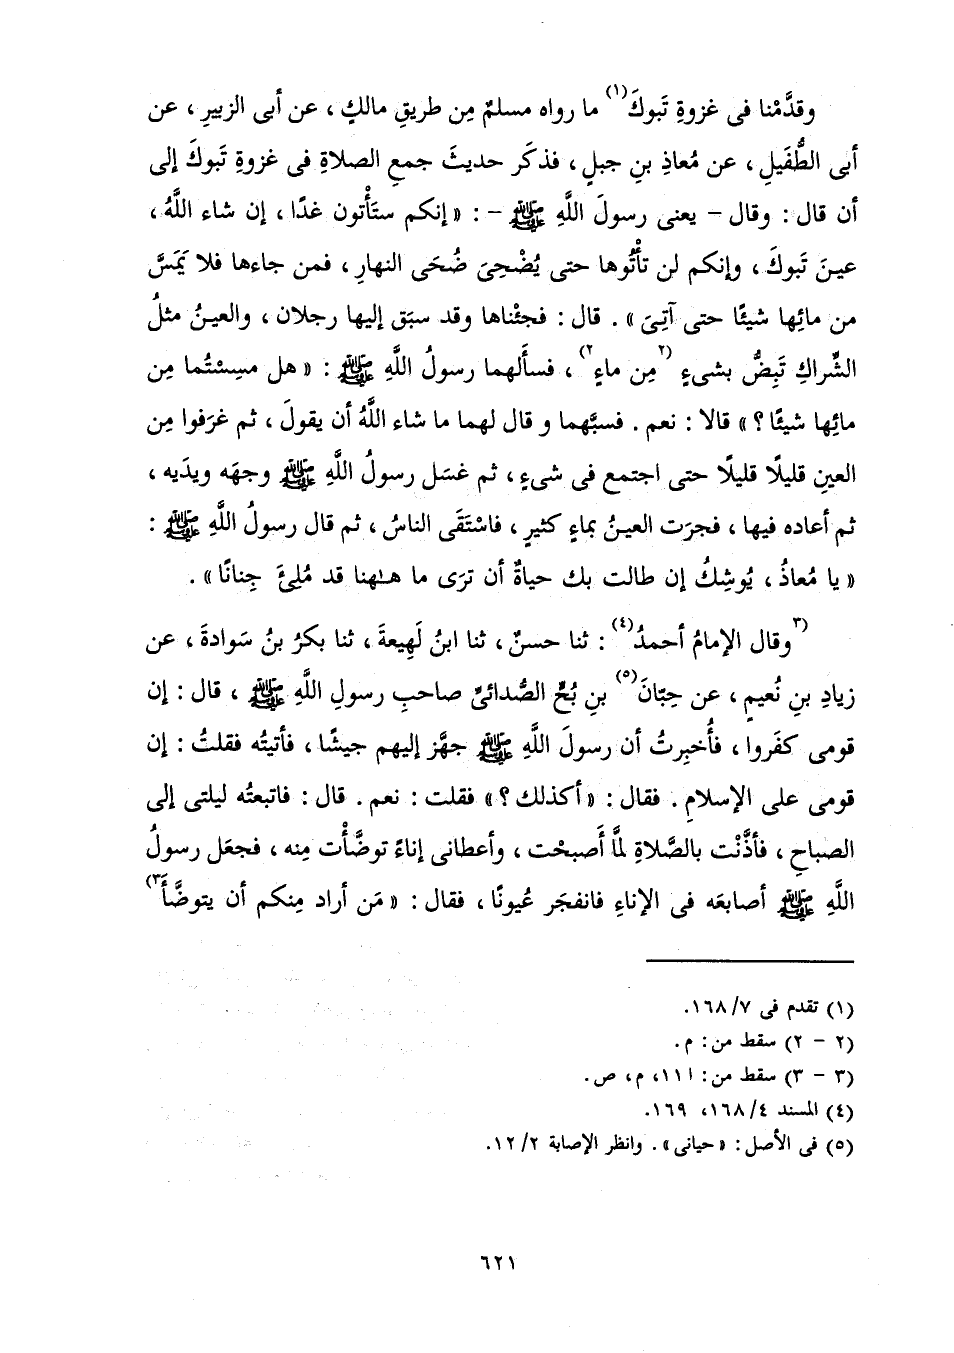 وقدَّمْنا فى غزوةِ تَبوكَ(١) ما رواه مسلمٌ مِن طريقِ مالكٍ ، عن أبى الزبيرِ ، عن
أبى الطُّفَيلِ ، عن مُعاذِ بنِ جبلٍ ، فذكَر حديثَ جمعِ الصلاةِ فى غزوةِ تَبوكَ إلى
أن قال : وقال – يعنى رسولَ اللَّهِ ﷺ – : « إنكم ستَأْتون غدًا ، إن شاء اللَّهُ ،
عينَ تَبوكَ ، وإنكم لن تأْتُوها حتى يُضْحِىَ ضُحَى النهارِ ، فمن جاءها فلا يَمَسَّ
من مائِها شيئًا حتى آتِىَ » . قال : فجئْناها وقد سبَق إليها رجلان ، والعينُ مثلُ
الشِّراكِ تَبِضُّ بشىءٍ (٢مِن ماءٍ٢) ، فسأَلهما رسولُ اللَّهِ ﷺ : « هل مسِسْتُما مِن
مائِها شيئًا ؟ » قالا : نعم . فسبَّهما و قال لهما ما شاء اللَّهُ أن يقولَ ، ثم غرَفوا مِن
العينِ قليلًا قليلًا حتى اجتمع فى شىءٍ ، ثم غسَل رسولُ اللَّهِ ﷺ وجهَه ويدَيه ،
ثم أعاده فيها ، فجرَت العينُ بماءٍ كثيرٍ ، فاسْتَقَى الناسُ ، ثم قال رسولُ اللَّهِ ﷺ :
« يا مُعاذُ ، يُوشِكُ إن طالت بك حياةٌ أن ترَى ما هـٰهنا قد مُلِئَ جِنانًا » .
(٣وقال الإمامُ أحمدُ(٤) : ثنا حسنٌ ، ثنا ابنُ لَهِيعةَ ، ثنا بكرُ بنُ سَوادةَ ، عن
زيادِ بنِ نُعيمٍ ، عن حِبّانَ(٥) بنِ بُحٍّ الصُّدائىِّ صاحبِ رسولِ اللَّهِ ﷺ ، قال : إن
قومى كفَروا ، فأُخبِرتُ أن رسولَ اللَّهِ ﷺ جهَّز إليهم جيشًا ، فأتيتُه فقلتُ : إن
قومى على الإسلامِ . فقال : « أكذلك ؟ » فقلت : نعم . قال : فاتبعتُه ليلتى إلى
الصباحِ ، فأذَّنْت بالصَّلاةِ لمَّا أَصبحْت ، وأعطانى إناءً توضَّأْت مِنه ، فجعَل رسولُ
اللَّهِ ﷺ أصابعَه فى الإناءِ فانفجَر عُيونًا ، فقال : « مَن أراد مِنكم أن يتوضَّأَ٣)
(١) تقدم فى ١٦٨/٧.
(٢ – ٢) سقط من : م .
(٣ – ٣) سقط من : ١١١، م ، ص .
(٤) المسند ١٦٨/٤، ١٦٩.
(٥) فى الأصل : « حيانى » . وانظر الإصابة ١٢/٢.
٦٢١